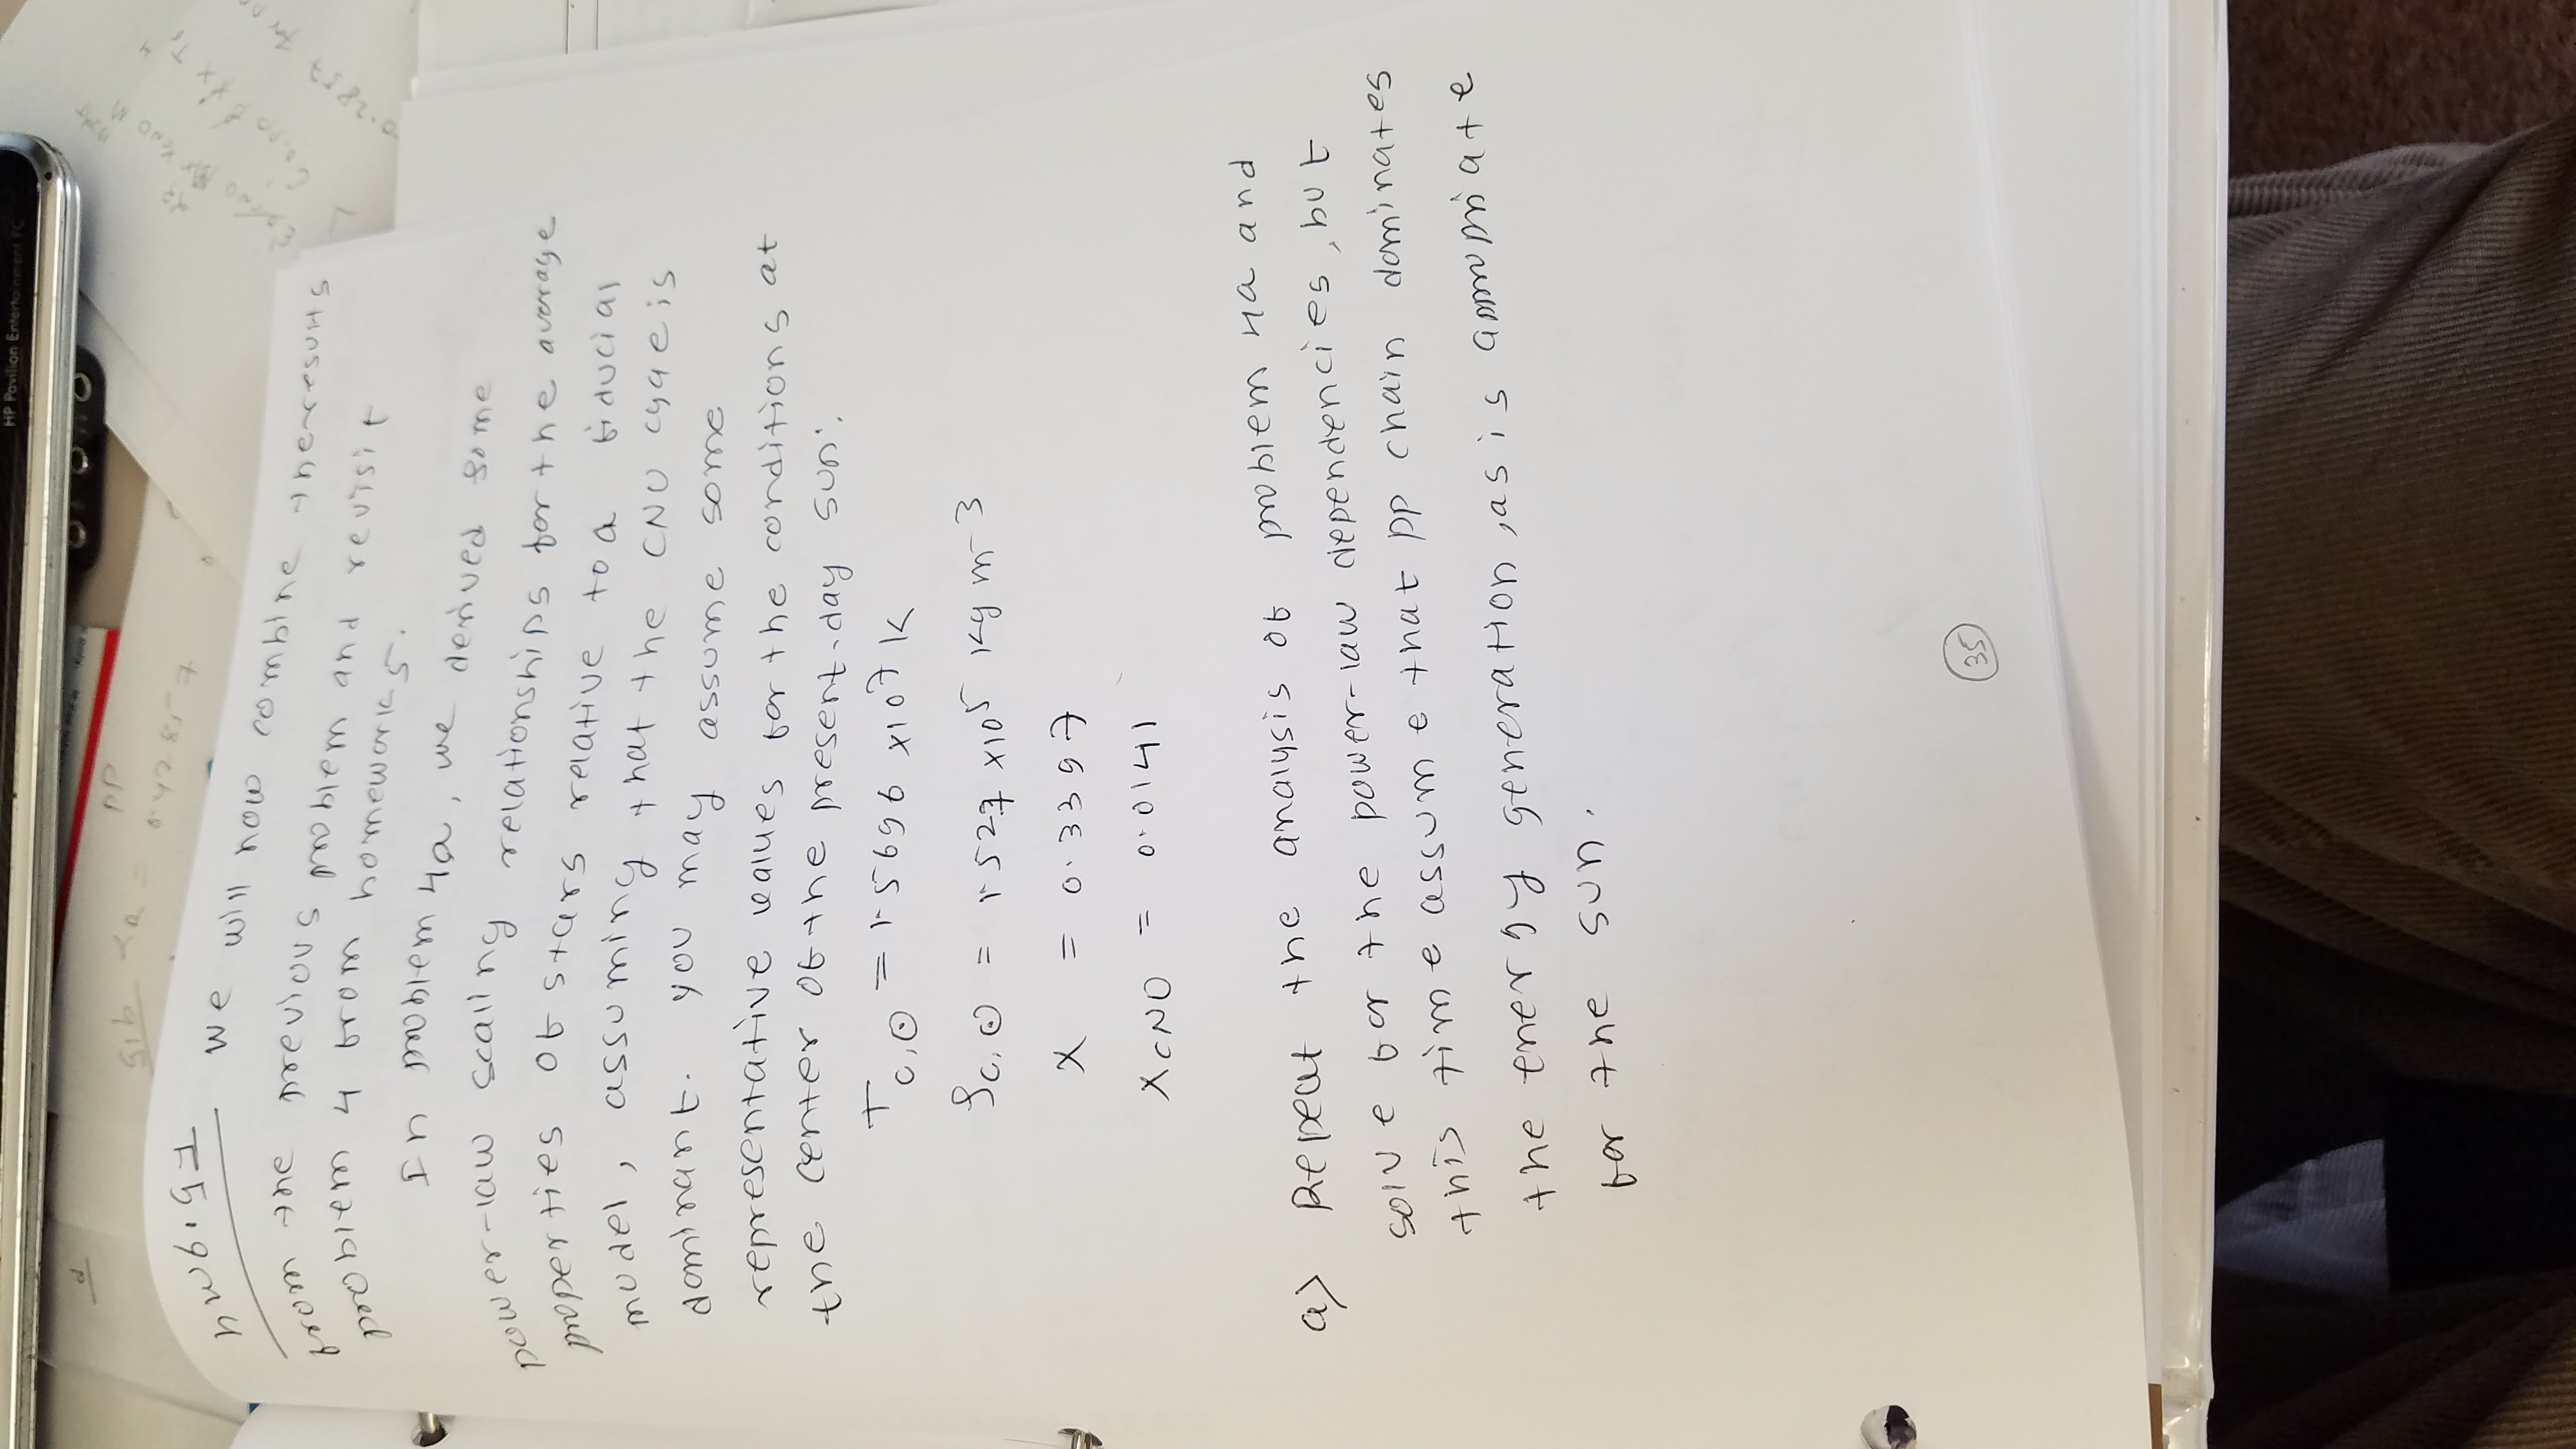 HP Pavilion Entertainment PC
PP
0.42857
hw6.q4
We will now combine the results
from the previous problem and revisit
problem 4 from homework 5.
In problem 4a, we derived some
power-law scaling relationships for the average
properties of stars relative to a fiducial
model, assuming that the CNO cycle is
dominant. you may assume some
representative values for the conditions at
the center of the present-day sun:
T c,⊙ = 1.5696 x10^7 K
ρc,⊙ = 1.527 x10^5 kg m-3
X = 0.3397
XCNO = 0.0141
a) Repeat the analysis of problem 4a and
solve for the power-law dependencies, but
this time assume that pp chain dominates
the energy generation, as is appropriate
for the sun.
35